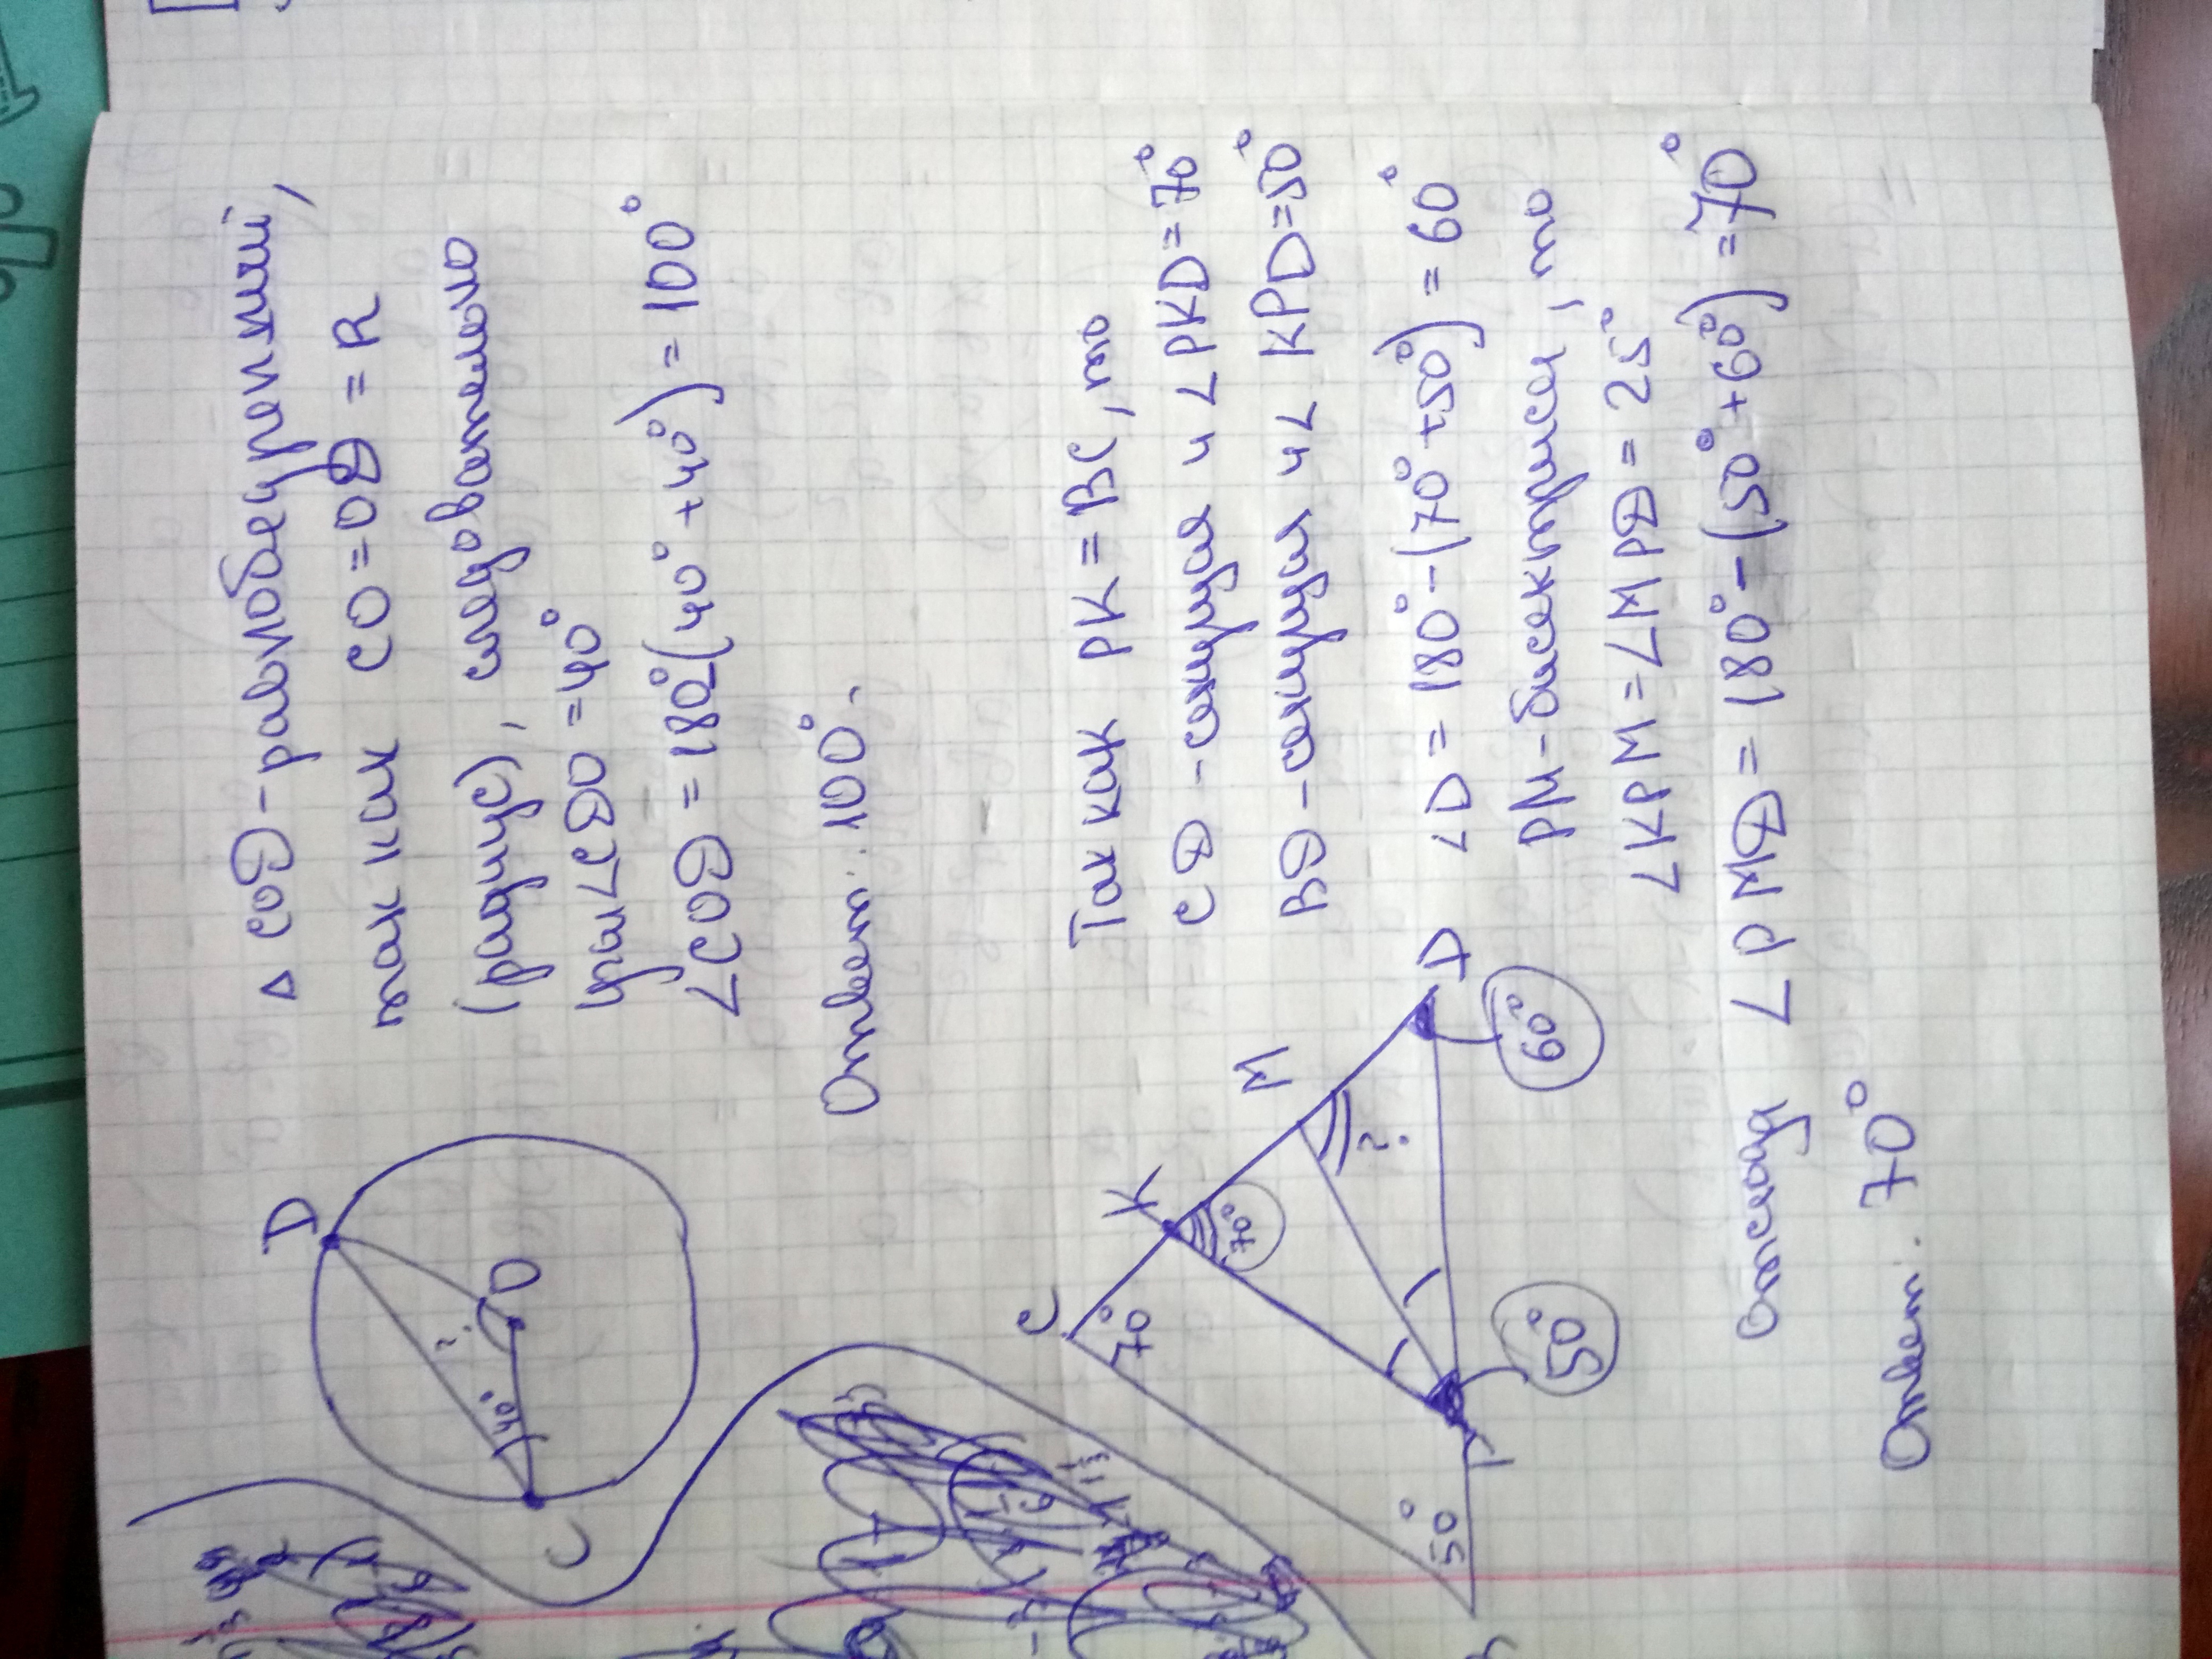 D
O
?
40°
C
△ COD - равнобедренный,
так как CO=OD = R
(радиус), следовательно
угл ∠CDO =40°
∠COD =180°(40°+40°) = 100°
Ответ: 100°.
C
K
M
D
P
70°
70°
?
60°
50°
50°
Так как PK = ЧC, то
CD - секущая и ∠PKD=70°
ЧD - секущая и ∠KPD=50°
∠D = 180°-(70°+50°) = 60°
PM-биссектриса, то
∠KPM=∠MPD = 25°
Отсюда ∠PMD = 180°-(50°+60°)=70°
Ответ: 70°